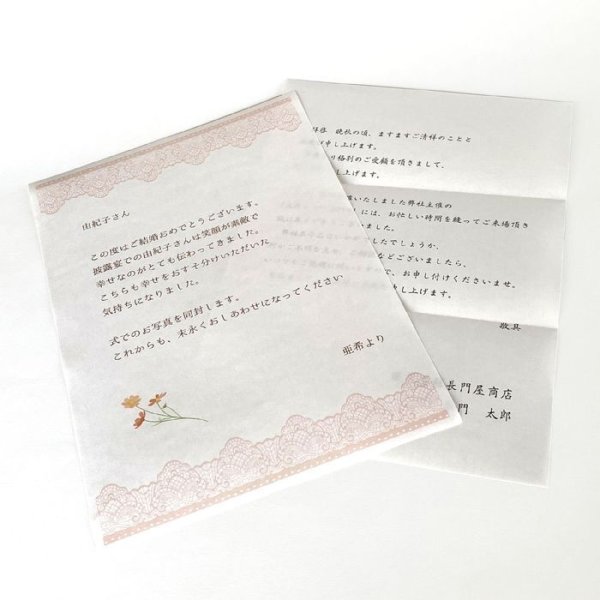 由紀子さん
この度はご結婚おめでとうございます。
披露宴での由紀子さんは笑顔が素敵で
幸せなのがとても伝わってきました。
こちらも幸せをおすそ分けいただいた
気持ちになりました。
式でのお写真を同封します。
これからも、末永くおしあわせになってください
亜希より
拝啓 晩秋の頃、ますますご清祥のことと
し上げます。
格別のご愛顧を頂きまして、
げます。
いたしました弊社主催の
には、お忙しい時間を縫ってご来場頂き
ました。
したでしょうか、
などございましたら、
で、お申し付けくださいませ。
し上げます。
敬具
長門屋商店
門 太郎